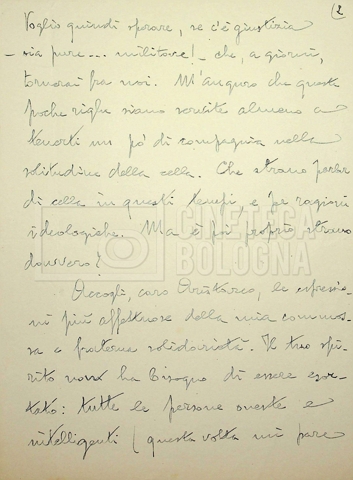 2
Voglio quindi sperare, se c'è giustizia
– sia pure... militare! – che, a giorni,
tornerai fra noi. M'auguro che queste
poche righe siano servite almeno a
tenerti un po' di compagnia nella
solitudine della cella. Che strano parlar
di cella in questi tempi, e per ragioni
ideologiche. Ma è poi proprio strano
davvero?
CINETECA
BOLOGNA
Accogli, caro Aristarco, le espressio-
ni più affettuose della mia commos-
sa e fraterna solidarietà. Il tuo spi-
rito non ha bisogno di essere esor-
tato: tutte le persone oneste e
intelligenti (questa volta mi pare